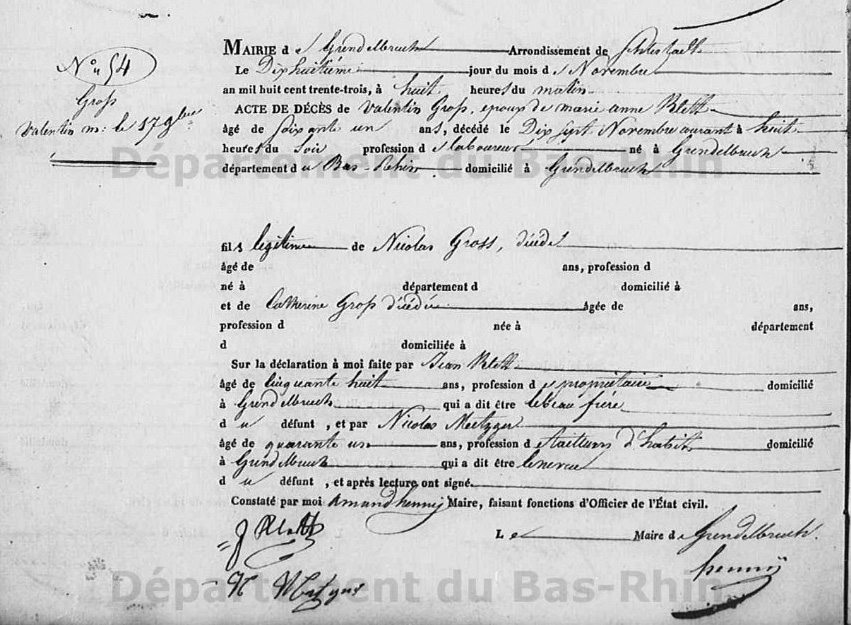 N° 54
Gross
Valentin m: le 17 9bre
MAIRIE de Grendelbruch Arrondissement de Schlestadt
Le Dixhuitième jour du mois de Novembre
an mil huit cent trente-trois, à huit heures du matin
ACTE DE DÉCÈS de Valentin Gross, epoux de marie anne Klett
âgé de soixante un ans, décédé le Dix sept Novembre courant à huit
heures du soir profession de laboureur né à Grendelbruch
département du Bas-Rhin domicilié à Grendelbruch
Département du Bas-Rhin
fils légitime de Nicolas Gross, décédé
âgé de ans, profession d
né à département d domicilié à
et de Catherine Gross décédée âgée de ans,
profession d née à département
d domiciliée à
Sur la déclaration à moi faite par Jean Klett
âgé de Cinquante huit ans, profession de propriétaire domicilié
à Grendelbruch qui a dit être le beau frère
du défunt, et par Nicolas Metzger
âgé de quarante un ans, profession de tailleur d'habit domicilié
à Grendelbruch qui a dit être le neveu
du défunt, et après lecture ont signé.
Constaté par moi Amand henny Maire, faisant fonctions d'Officier de l'État civil.
J Klett
Le Maire de Grendelbruch.
henny
N Metzger
Département du Bas-Rhin